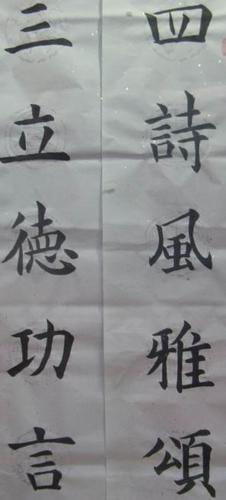 四詩風雅頌
三立德功言